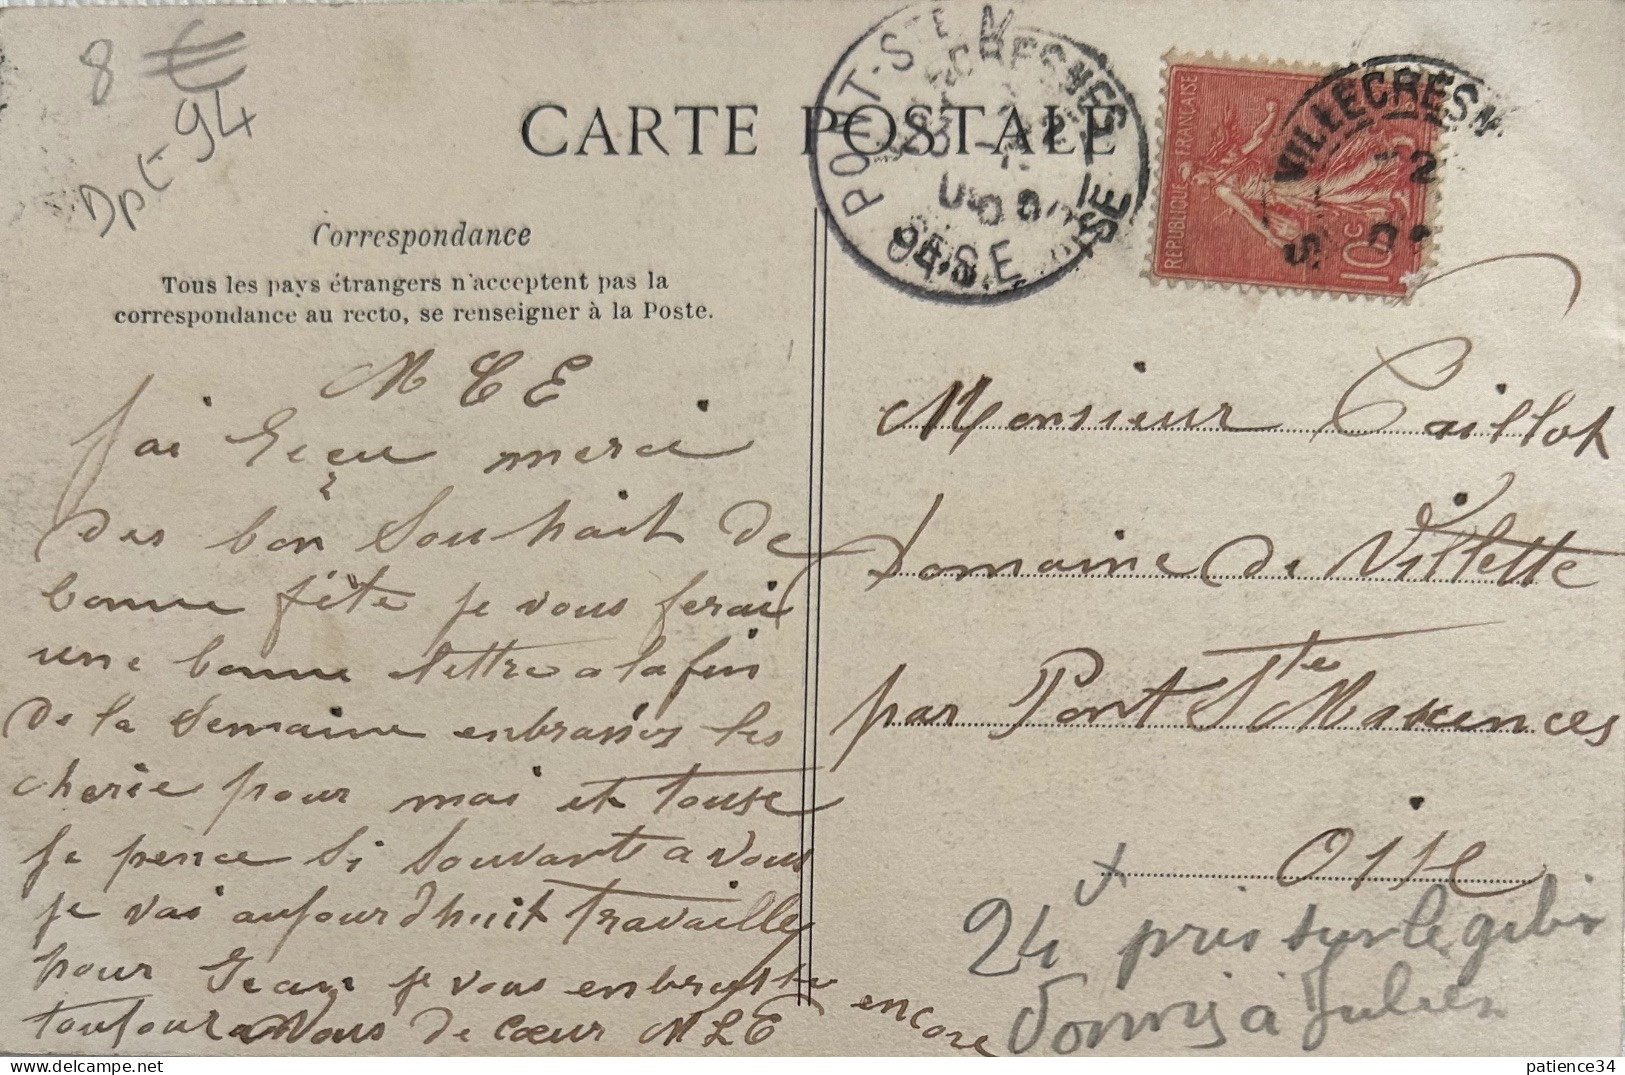 8 €
Dpt 94
CARTE POSTALE
Correspondance
Tous les pays étrangers n'acceptent pas la
correspondance au recto, se renseigner à la Poste.
M C E
J'ai reçu merci
des bon Souhait de
bonne fête je vous ferai
une bonne lettre a la fin
de la Semaine enbrassés les
cherie pour moi et touse
je pence Si Souvante a vous
je vais aujourd'huit travaille
pour Jean je vous enbrasse encore
toujour a Vous de cœur M L E
PONT-STE-M
OISE
VILLECRESNES
REPUBLIQUE FRANÇAISE
10c
VILLECRESN
Monsieur Caillot
Domaine de Villette
par Pont Ste Maxences
Oise
24 pris sur le
à Julien
patience34